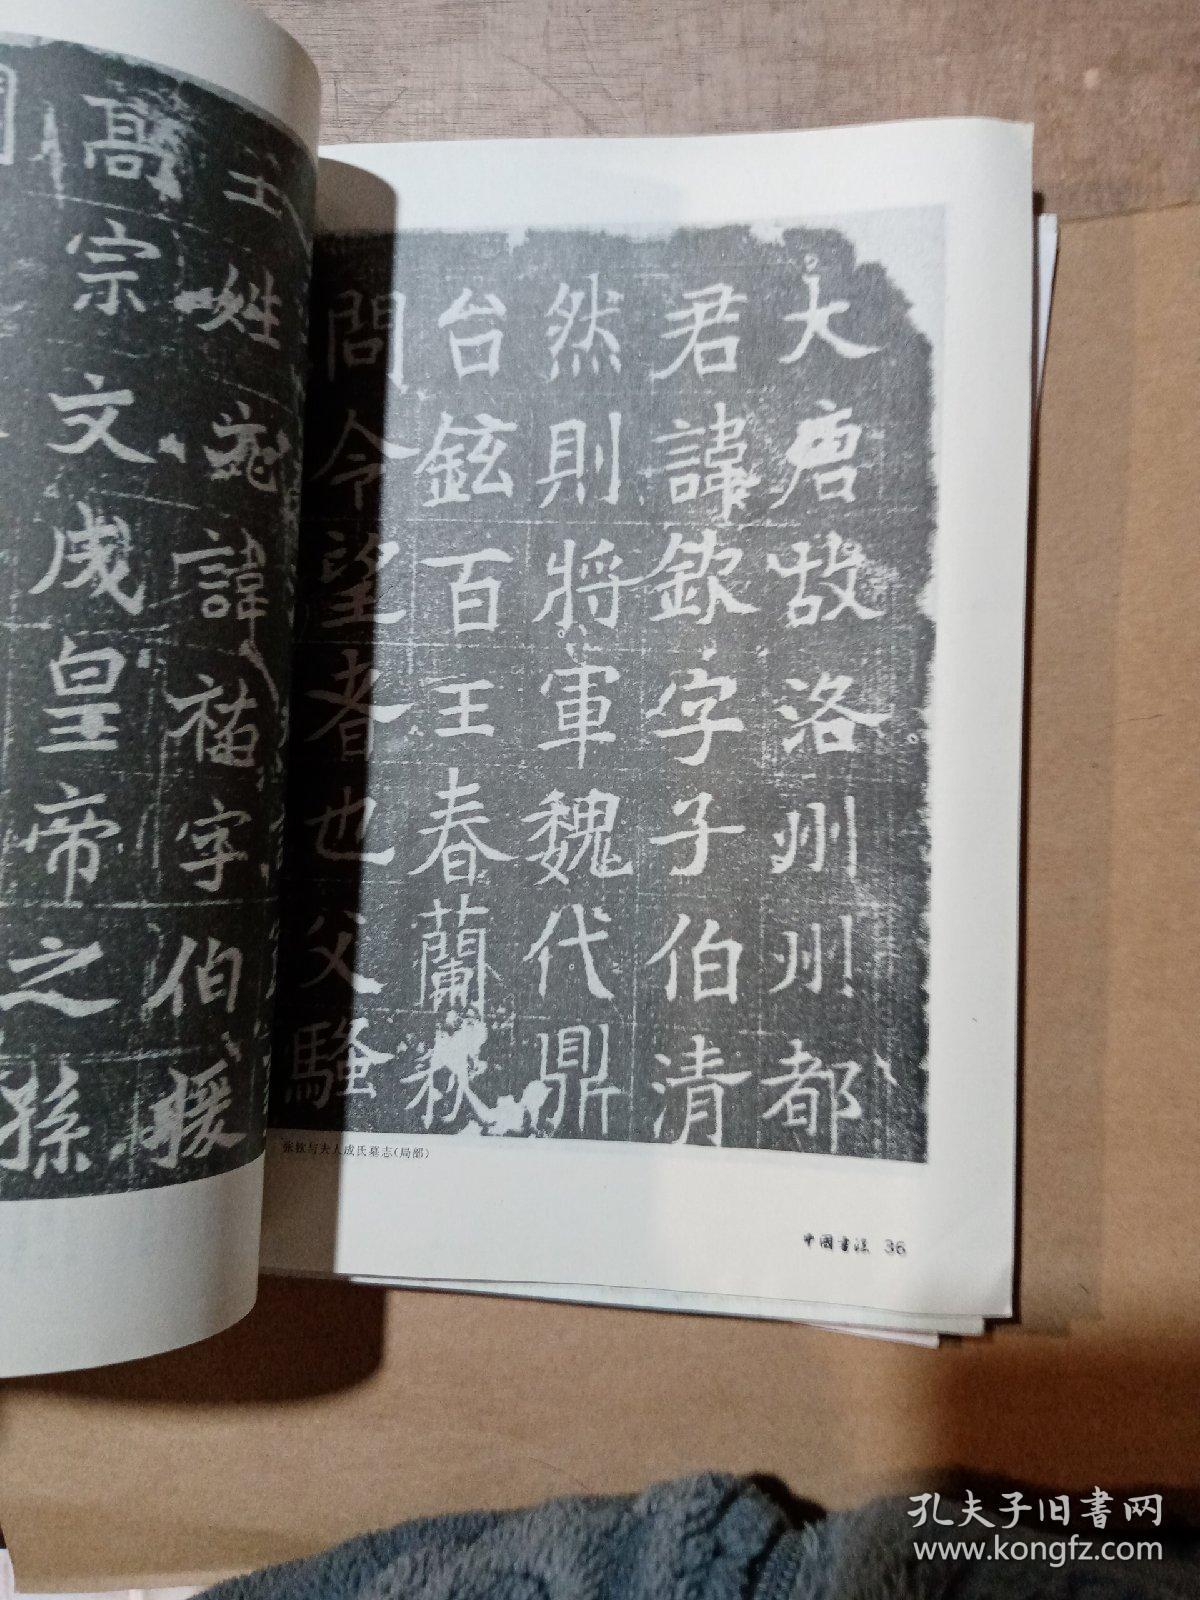 大唐故洛州州都
君諱欽字子伯清
然則將軍魏代鼎
台鉉百王春蘭秋
問令望者也父騷
张钦与夫人成氏墓志(局部)
中國書法 36
王姓元諱禧字伯媛
高宗文成皇帝之孫
孔夫子旧書网
www.kongfz.com